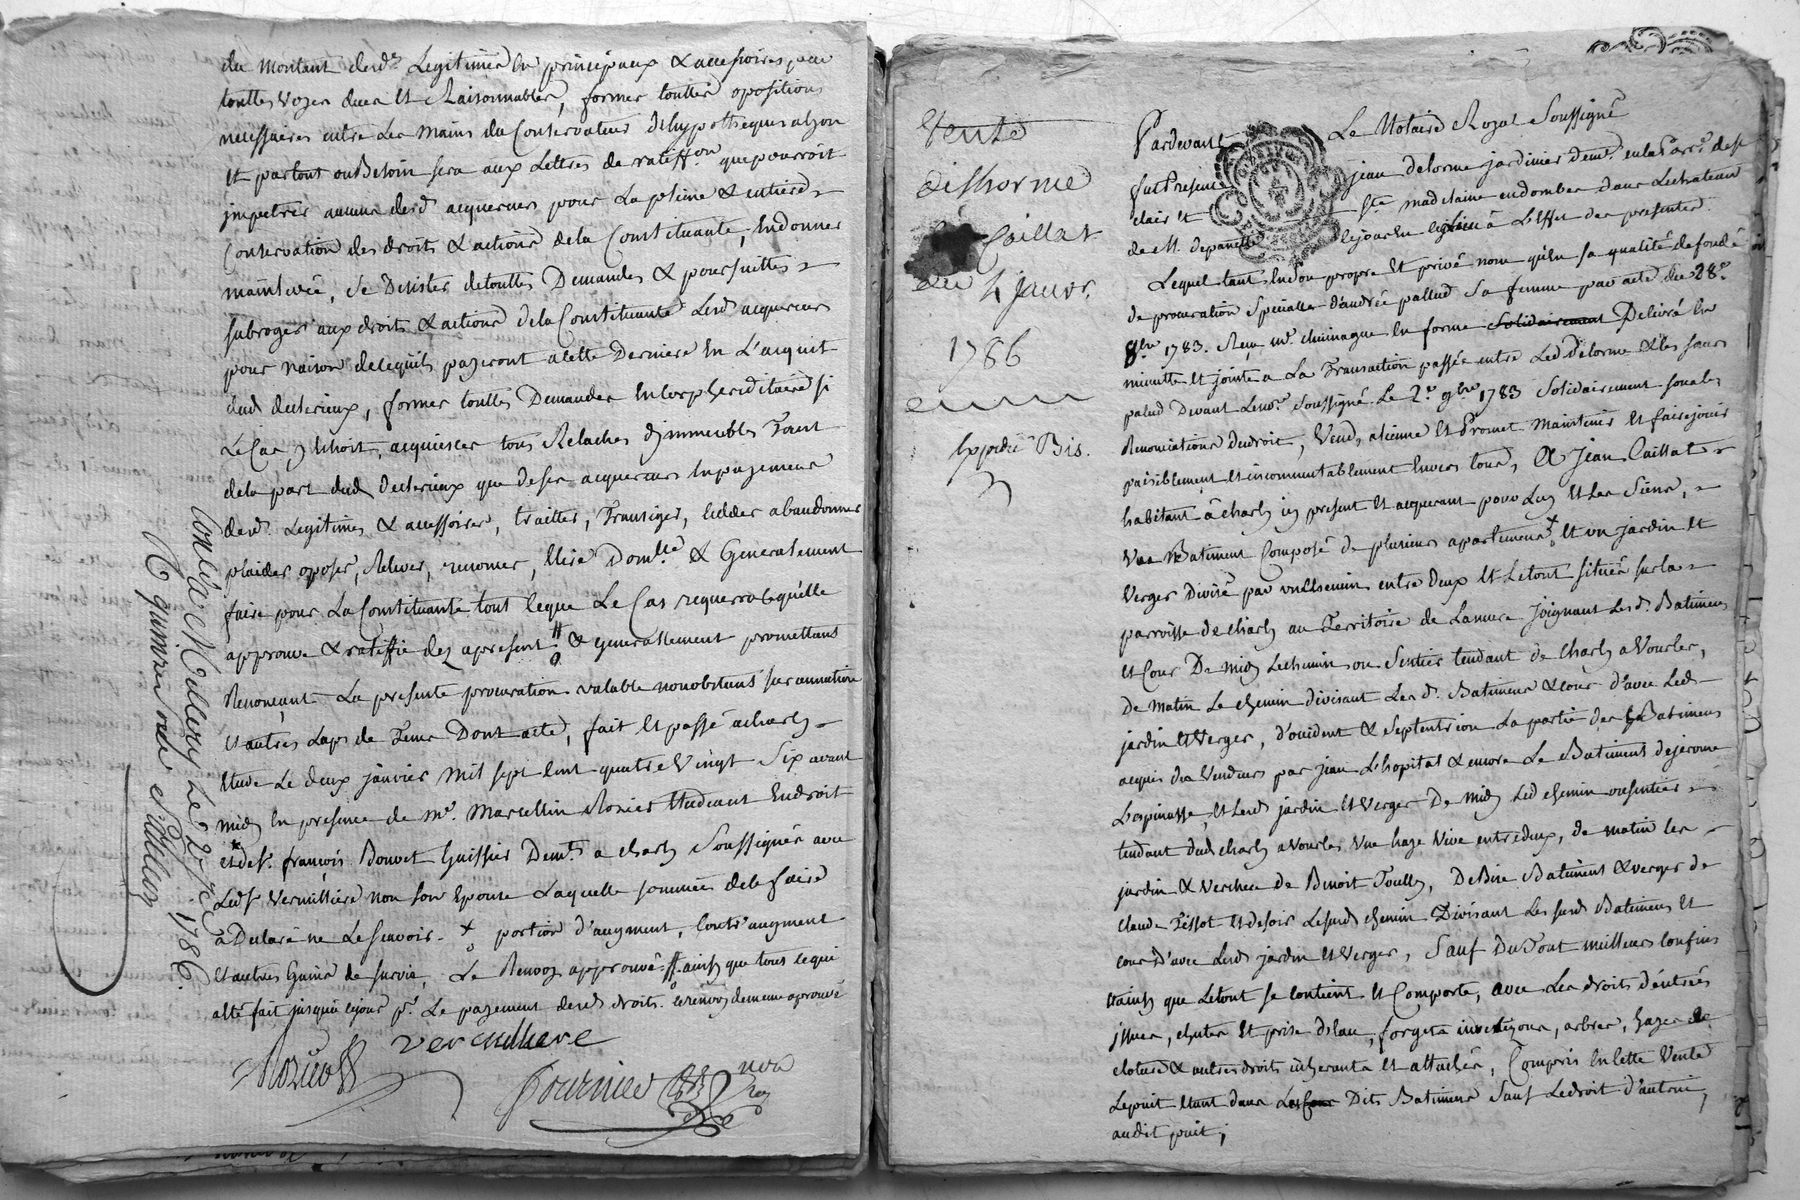 du montant desd. Legitimes en principaux & accessoires par
touttes voyes dues et Raisonnables, former touttes opositions
necessaires entre Les mains du Conservateur d'hypotheques a Lyon
et partout ou Besoin sera aux Lettres de ratiffon que pourroit
impetrer aucuns desd acquereurs pour La pleine & entiere
Conservation des droits & actions de la Constituante, En donner
mainlevée, se Desister de touttes Demandes & poursuittes
subroger aux droits & actions de la Constituante Lesd acquereurs
pour raison de ce quils payeront a cette Derniere En L'acquit
dud decterieux, former touttes Demandes En corps hereditaire si
Le Cas y Echoit, acquiescer tous Relaches d'immeubles Tant
de la part dud decterieux que de ses acquereurs En payement
desd. Legitimes & accessoires, traitter, Transiger, ceder abandonner
plaider oposer, Relever, renoncer, Elire Domlle & Generalement
faire pour La Constituante tout ce que Le Cas requerra & qu'elle
approuve & ratiffie dez apresent # & generallement promettant
Renonçant La presente procuration valable nonobstant surannation
et autres Laps de Tems Dont acte, fait et passé a charly
Etude Le deux janvier mil sept Cent quatre Vingt Six avant
midy En presence de me. Marcellin Rozier Etudiant En droit
et de sr. françois Bouvet huissier Demts a charly Soussignés avec
Led sr Vermilliere non son Epouse Laquelle sommée de le faire
a Declaré ne Le scavoir. + portion d'augment, Contr'augment
et autres Gains de survie, Le Renvoy approuvé # ainsy que tout ce qui
a été fait jusqu'a ce jour pr. Le payement desd droits. ce renvoy demeure aprouvé
Rozier
Fournier
Conlé a Millery Le 2 jer 1786.
R quinze sols
Vente
delhorme
a Caillat
du 4 janvr.
1786
Expedié Bis.
Pardevant Le Notaire Royal Soussigné
fut Present jean delorme jardinier demt. en la Parre. de st
clair et ste madelaine en dombes dans Le chateau
de M. depanette ce jour En Eglise a L'Effet des presentes
Lequel tant En son propre et privé nom qu'En sa qualité de fondé
de procuration Specialle d'andrée pallud Sa femme par acte du 28e
8bre 1783. Reçu Me. chuinague En forme Solidairement Delivré En
minutte et jointe a La Transaction passée entre Led delorme & Les sieurs
palud Devant Le nore. Soussigné Le 2e 9bre 1783 Solidairement sous les
Renonciations de droit, Vend, aliene et Promet maintenir et faire jouir
paisiblement et incommutablement Envers tous, A Jean Caillat
habitant a charly icy present et acquerant pour Luy et Les Siens,
Un Batiment Composé de plusieurs apartements + et un jardin et
Verger Divisé par un Chemin entre deux et Le tout situés sur la
parroisse de Charly au Territoire de Lamure Joignant Lesd. Batimens
et Cour De midy Le chemin ou Sentier tendant de Charly a Vourles,
De Matin Le chemin divisant Lesd. Batimens & cour d'avec Led
jardin et Verger, d'occident & Septentrion La partie des Batimens
acquis des Vendeurs par jean L'hopital & encore Le Batiment de jerome
Lespinasse, et Lesd jardin et Verger De midy Led chemin ou sentier
tendant dud charly a Vourles une haye vive entre deux, de matin les
jardin & Verchere de Benoit Toully, De Bise Batiment & verger de
Claude Tissot et de soir Le susd chemin Divisant Les susd Batimens et
cour D'avec Lesd jardin et Verger, Sauf Du Tout meilleurs Confins
Et ainsy que Le tout se Contient et Comporte, avec Les droits d'entrées
issues, chutes et prise d'eau, forgets inveteyons, arbres, hayes de
cloture & autres droits inherants et attachés, Compris En cette Vente
Le puit etant dans Les Dits Batimens Sauf Le droit d'autrui
audit puit,